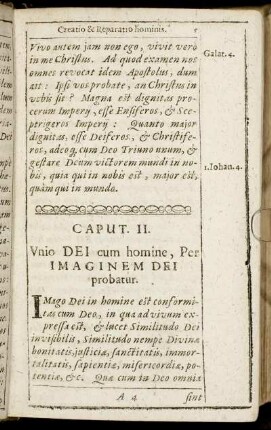 Creatio & Reparatio hominis. 5
Vivo autem jam non ego, vivit vero
in me Christus. Ad quod examen nos
omnes revocat idem Apostolus, dum
ait: Ipsi vos probate, an Christus in
vobis sit? Magna est dignitas pro
cerum Imperÿ, esse Ensiferos, & Sce-
ptrigeros Imperÿ: Quanto major
dignitas, esse Deiferos, & Christife-
ros, adeoq; cum Deo Triuno unum, &
gestare Deum victorem mundi in no-
bis, quia qui in nobis est, major est,
quàm qui in mundo.
Galat. 4.
1. Iohan. 4.
CAPUT. II.
Vnio DEI cum homine, Per
IMAGINEM DEI
probatur.
IMago Dei in homine est conformi-
tas cum Deo, in qua ad vivum ex-
pressa est, & lucet Similitudo Dei
invisibilis, Similitudo nempe Divinæ
bonitatis, justiciæ, sanctitatis, immor-
talitatis, sapientiæ, misericordiæ, po-
tentiæ, &c. Quæ cum in Deo omnia
A 4 sint